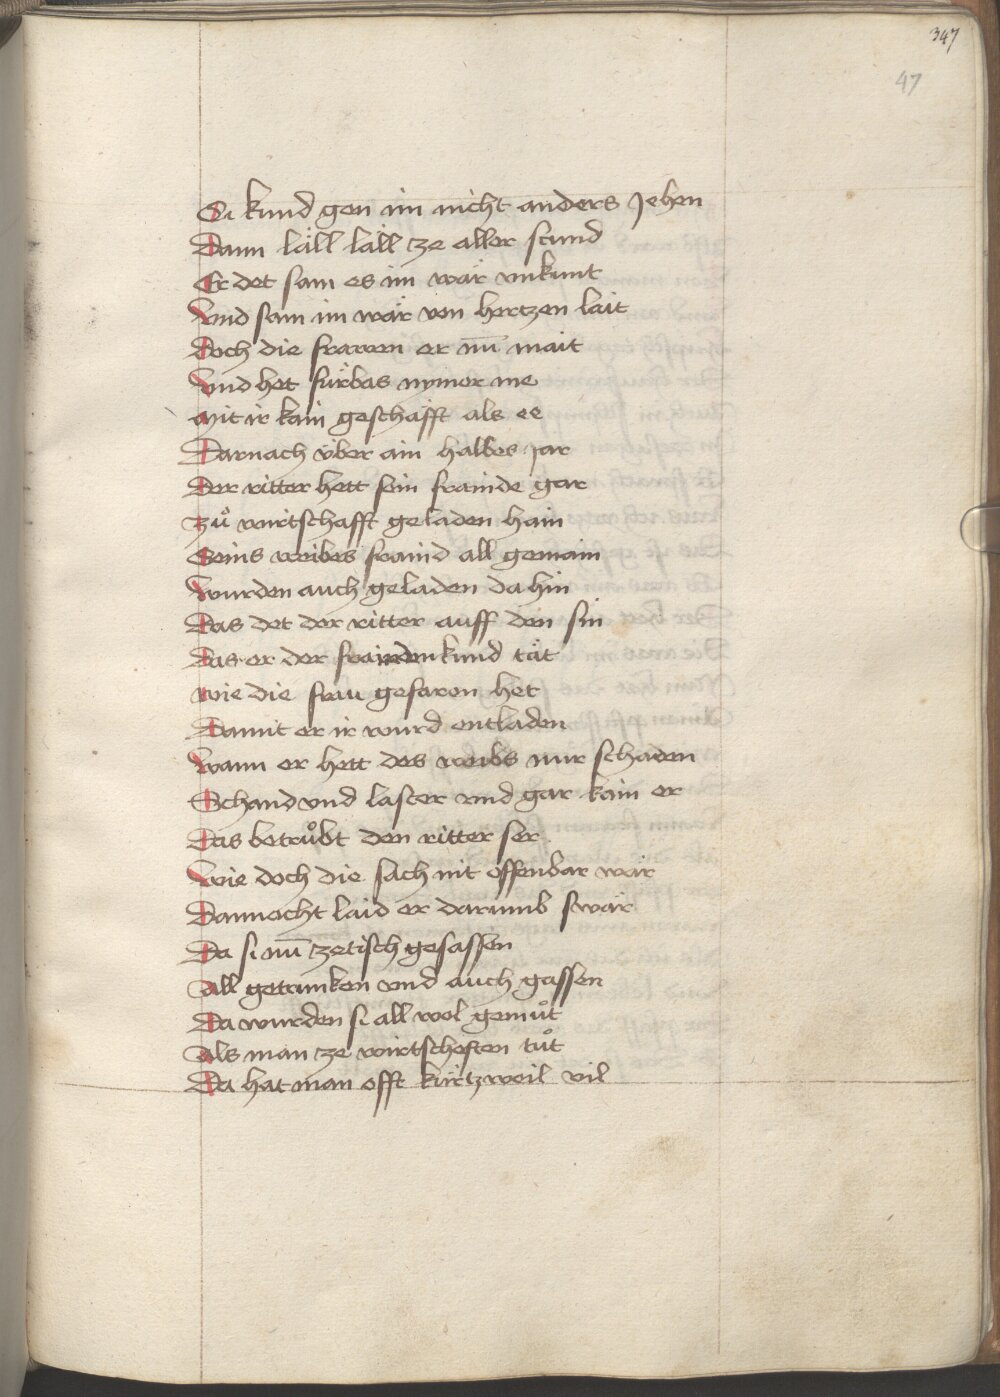 347
47
Si kund gen im nicht anders Jehen
Dann läll läll tze aller stund
Er det sam es im wär vnkunt
Vnd sam im wär von hertzen lait
Doch die frawen er nu̅ mait
Vnd het fürbas nymer me
Mit ir kain geschäfft als ee
Darnach über ain halbes Jar
Der ritter hett sein frainde gar
Zů wirtschafft geladen haim
Seins weibes fraind all gemain
Wurden auch geladen da hin
Das det der ritter auff den sin
Das er der frainden kund tät
Wie die frau gefaren het
Damit er ir wurd entladen
Wann er hett des weibs nur schaden
Schand vnd laster vnd gar kain er
Das betrůbt den ritter ser
Wie doch die sach nit offenbar wär
Dannocht laid er darumb swär
Da si nu̅ tzetisch gesassen
All getrunken vnd auch gassen
Da wurden si all wol gemůt
Als man tze wirtscheften tůt
Da hat man offt kürtzweil vil